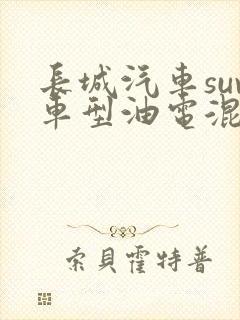 長城汽車su
車型油電混
索貝霍特普